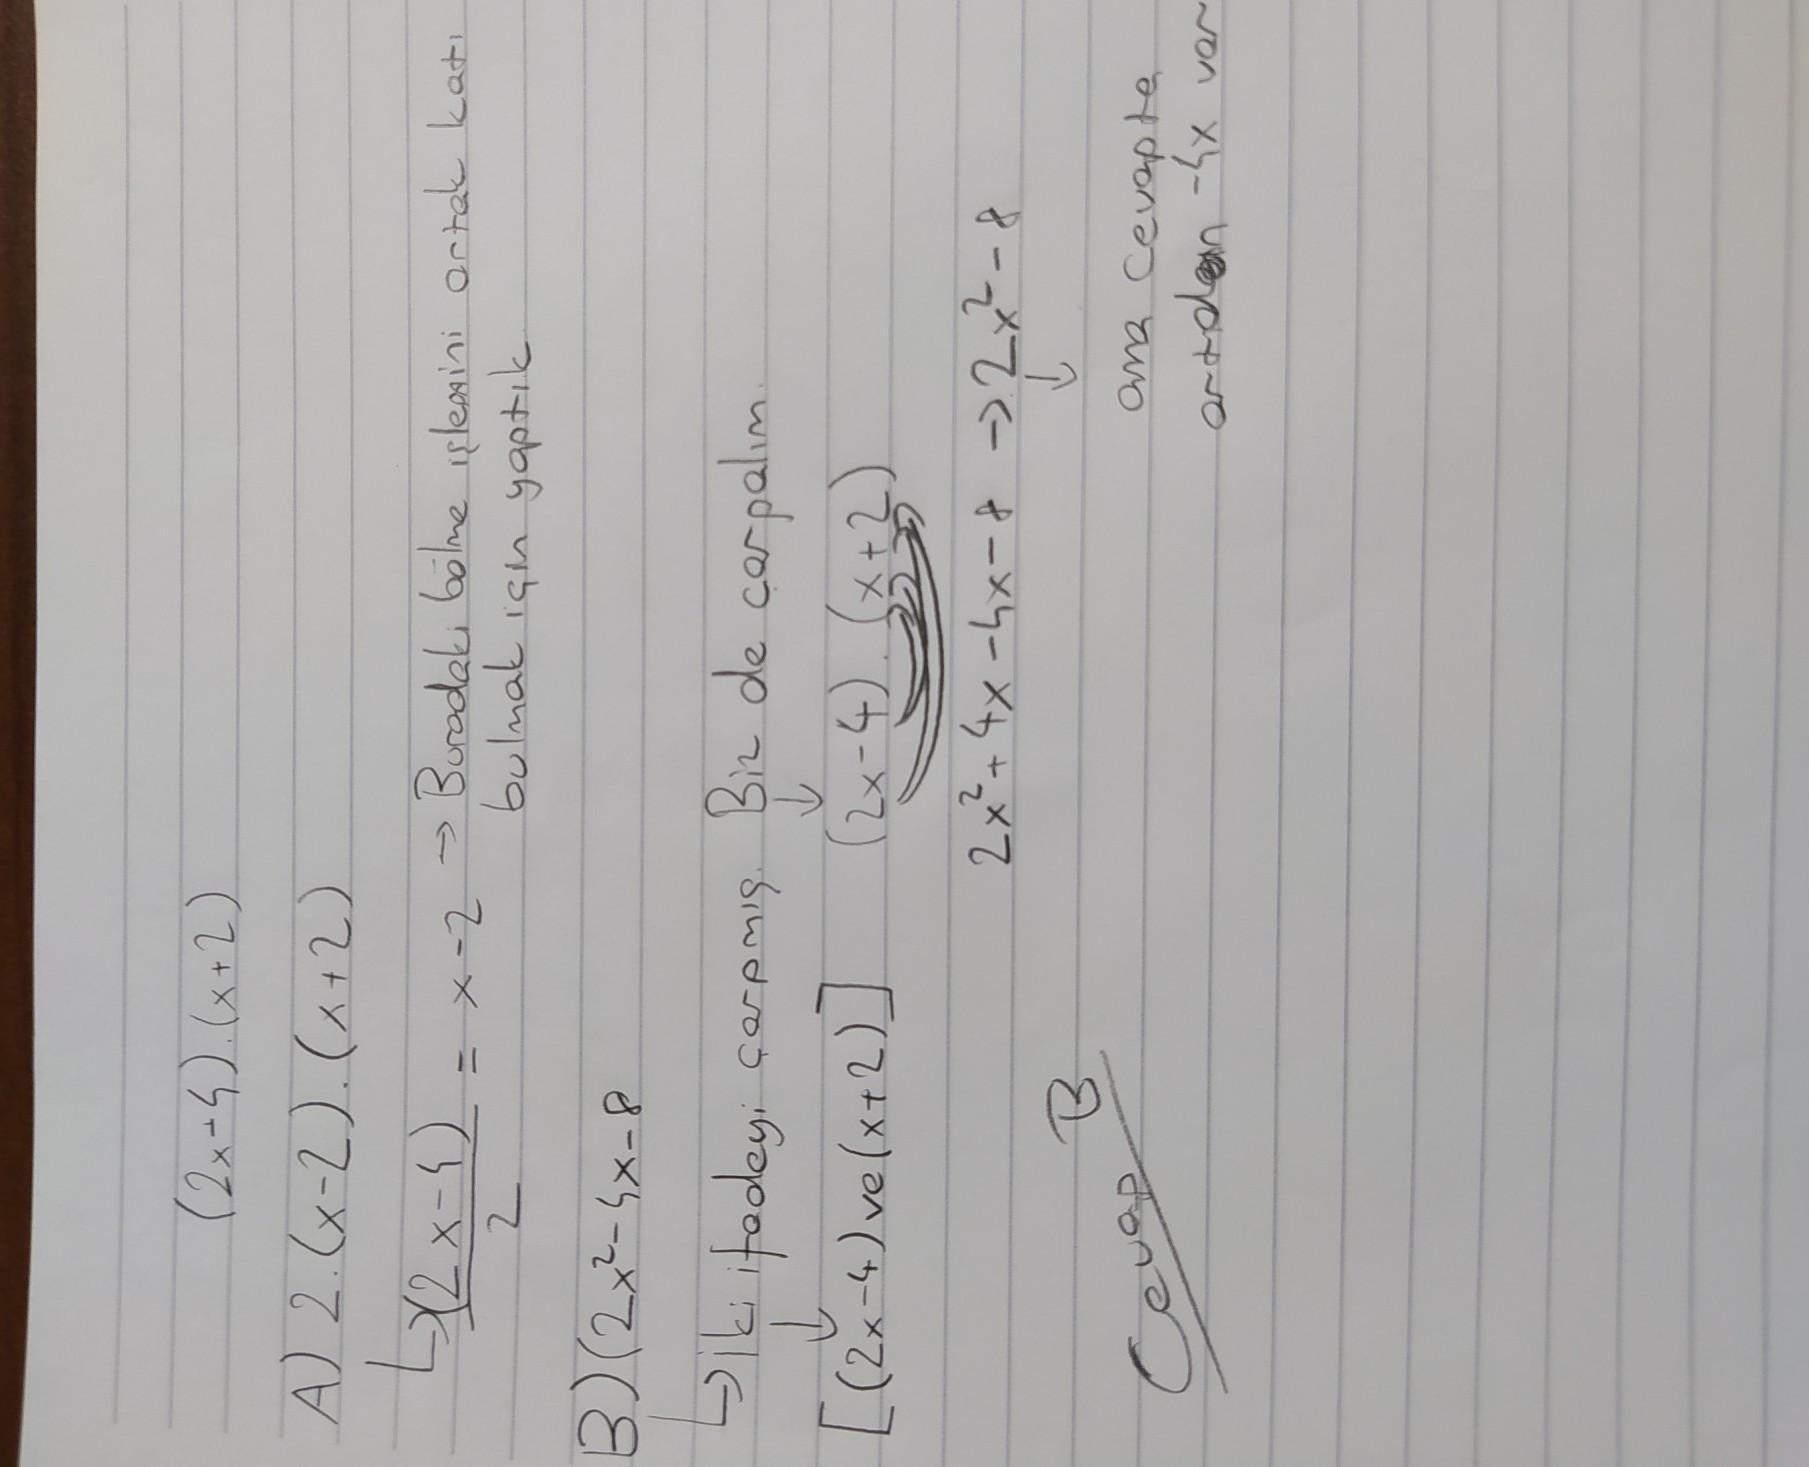 (2x-4).(x+2)
A) 2.(x-2).(x+2)
↳ (2x-4)/2 = x-2 → Buradaki bölme işlemini ortak katı
bulmak için yaptık
B) (2x²-4x-8
↳ İki ifadeyi çarpmış. Biz de çarpalım.
[(2x-4) ve (x+2)] (2x-4).(x+2)
2x²+4x-4x-8 → 2x²-8
ama cevapta
artdan -4x var
Cevap B